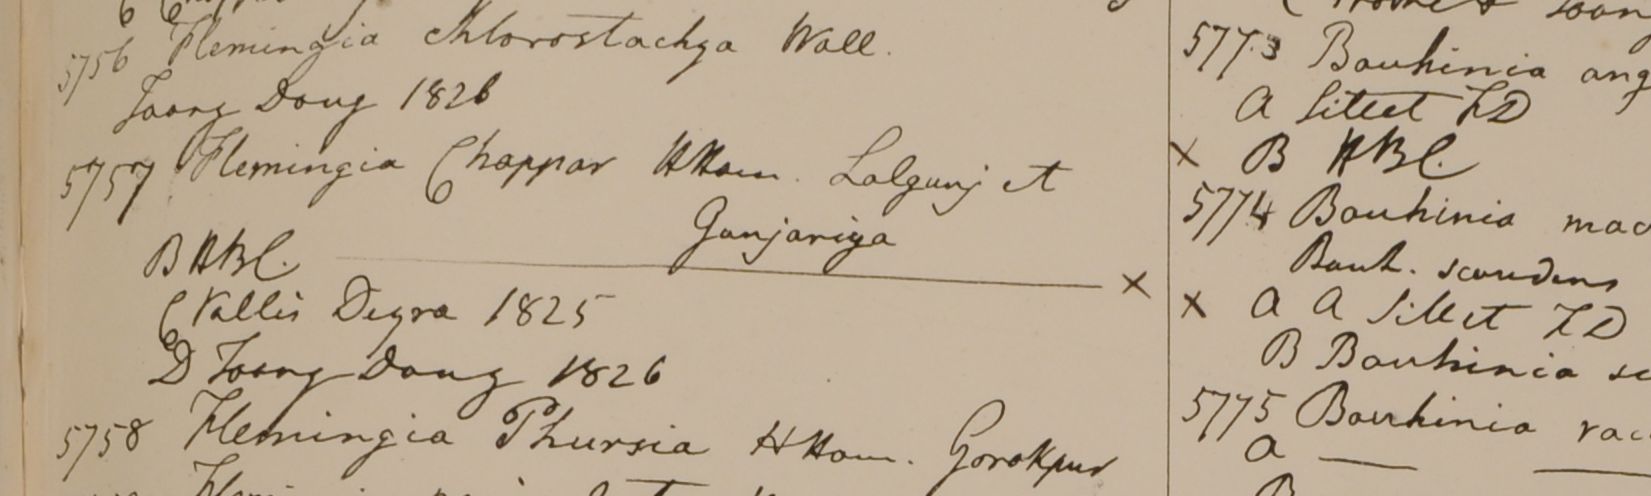 5756 Flemingia chlorostachya Wall.
Toong Dong 1826
5757 Flemingia Chappar HHam. Lalgunj et
Gunjariya
B HBC. ——— ×
C Vallis Degra 1825
D Toong Dong 1826
5758 Flemingia Phursia HHam. Gorakpur
5773 Bauhinia ang
A Sillet FD
× B HBC.
5774 Bauhinia mac
Bauh. scandens
× A A Sillet FD
B Bauhinia sc
5775 Bauhinia rac
A ——— ———
B